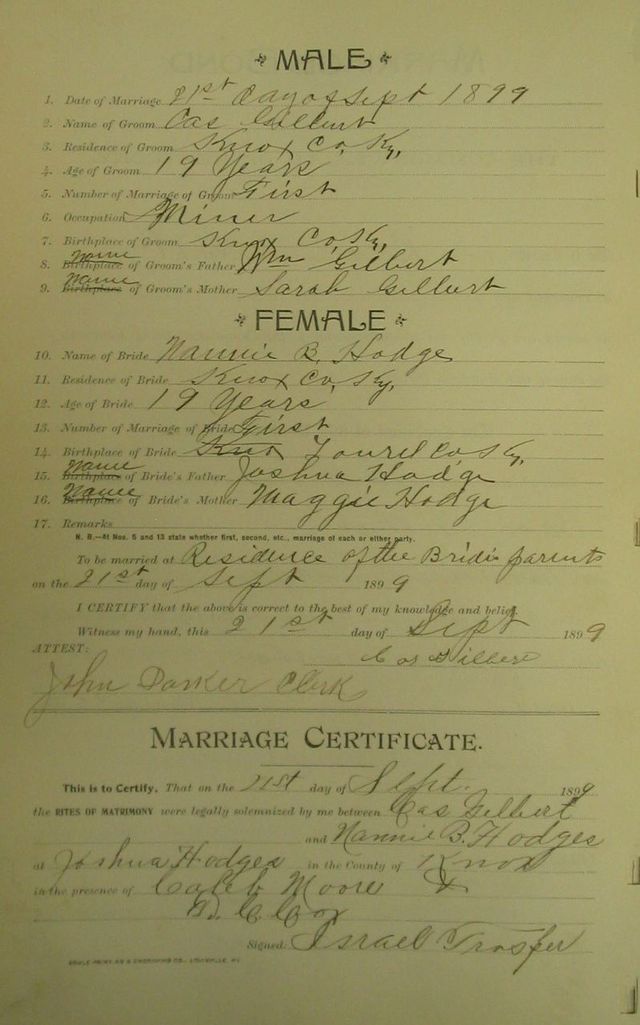 MALE
1. Date of Marriage 21st day of Sept 1899
2. Name of Groom Cas Gilbert
3. Residence of Groom Knox Co, Ky,
4. Age of Groom 19 Years
5. Number of Marriage of Groom First
6. Occupation Miner
7. Birthplace of Groom Knox Co, Ky,
8. Birthplace Name of Groom's Father Wm Gilbert
9. Birthplace Name of Groom's Mother Sarah Gilbert
FEMALE
10. Name of Bride Nannie B. Hodge
11. Residence of Bride Knox Co, Ky,
12. Age of Bride 19 Years
13. Number of Marriage of Bride First
14. Birthplace of Bride Knox Co Ky,
15. Birthplace Name of Bride's Father Joshua Hodge
16. Birthplace Name of Bride's Mother Maggie Hodge
17. Remarks
N. B.—At Nos. 5 and 13 state whether first, second, etc., marriage of each or either party.
To be married at Residence of the Brides parents
on the 21st day of Sept 1899
I CERTIFY that the above is correct to the best of my knowledge and belief.
Witness my hand, this 21st day of Sept 1899
ATTEST:
Cas Gilbert
John Parker Clerk
MARRIAGE CERTIFICATE.
This is to Certify, That on the 21st day of Sept. 1899
the RITES OF MATRIMONY were legally solemnized by me between Cas Gilbert
and Nannie B. Hodges
at Joshua Hodges in the County of Knox
in the presence of Caleb Moore &
D. C. Cox
Signed: Israel Trosper